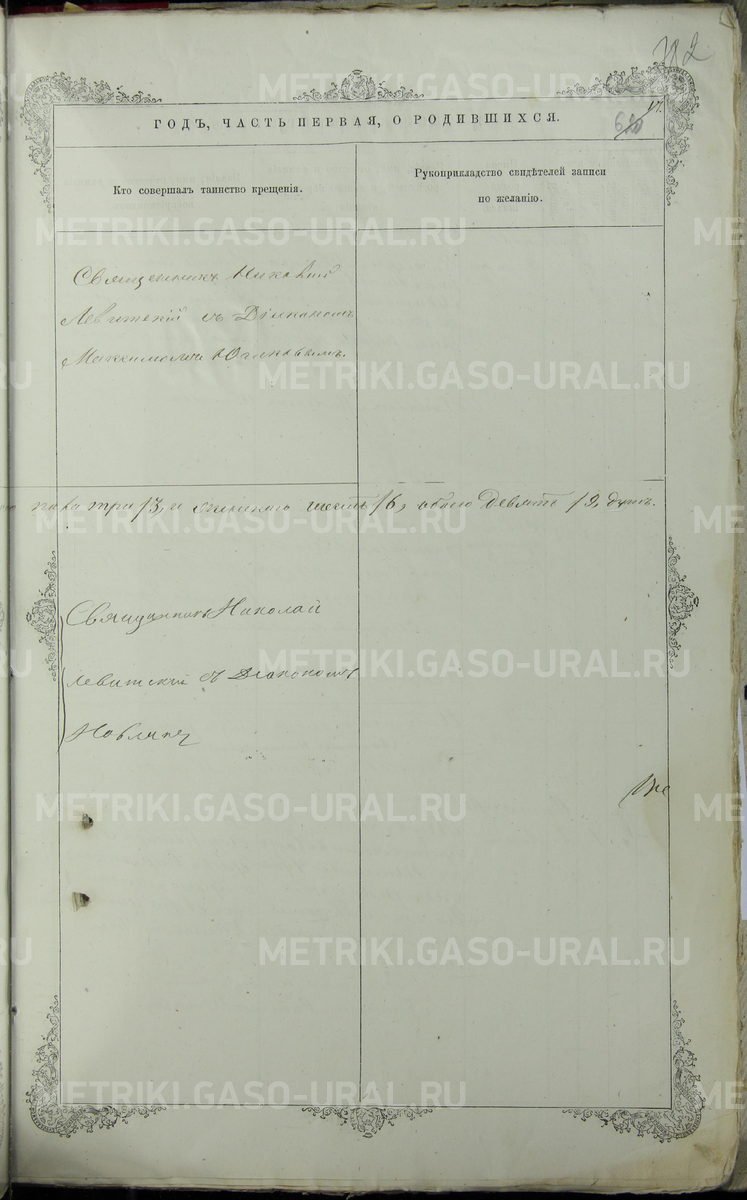 17.
ГОДЪ, ЧАСТЬ ПЕРВАЯ, О РОДИВШИХСЯ.
Кто совершалъ таинство крещенія.
Рукоприкладство свидѣтелей записи
по желанію.
Священникъ Николай
Левитскій съ Діакономъ
Максимомъ
пола три /3, и женскаго шесть /6, обоего девять /9, душъ.
Священникъ Николай
Левитскій съ Діакономъ
METRIKI.GASO-URAL.RU